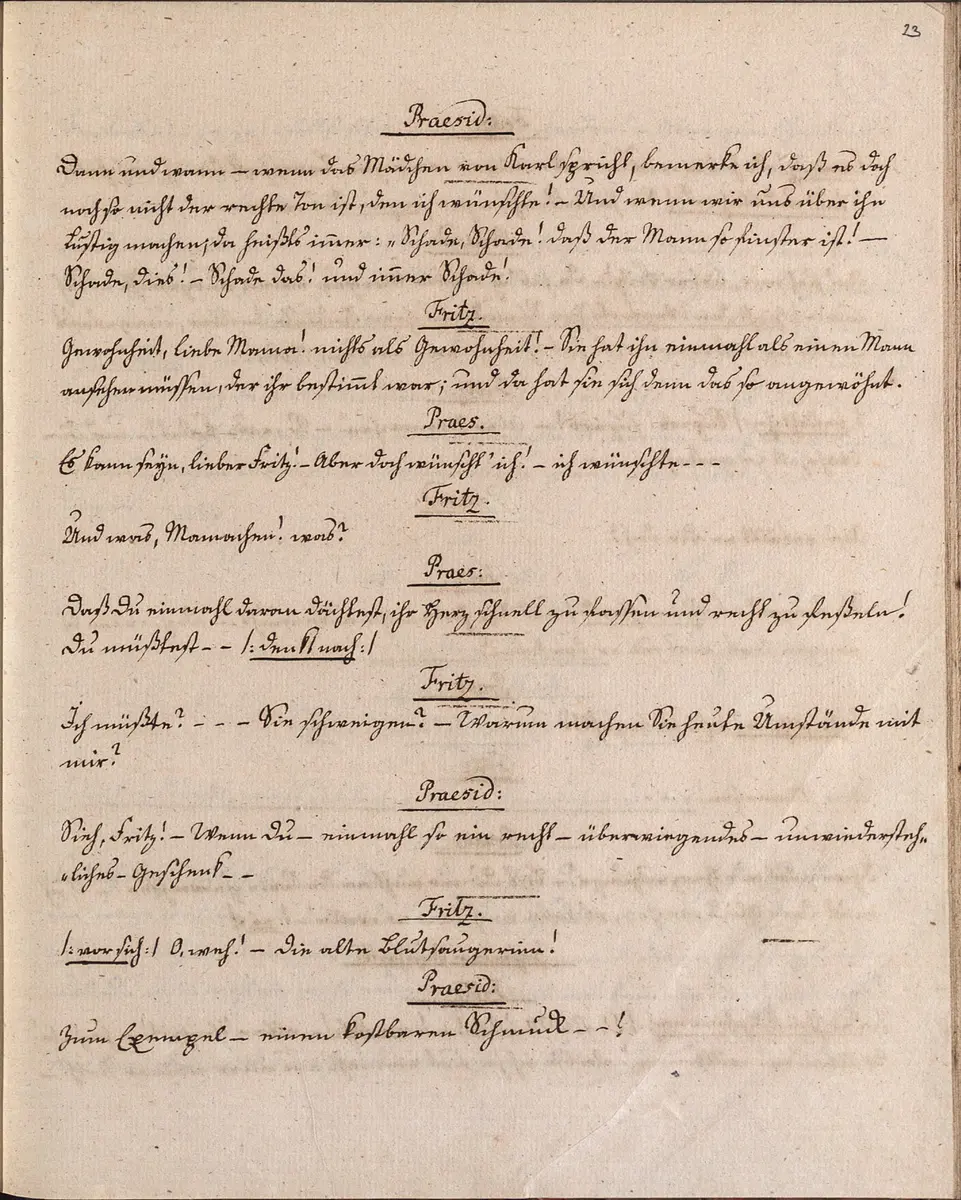 23
Praesid:
Dann und wann – wenn das Mädchen von Karl spricht, bemerke ich, daß es doch
noch so nicht der rechte Ton ist, den ich wünschte! – Und wenn wir uns über ihn
lustig machen, da heißts immer: „Schade, Schade! daß der Mann so finster ist! –
Schade, dies! – Schade das! und immer Schade!
Fritz.
Gewohnheit, liebe Mama! nichts als Gewohnheit! – Sie hat ihn einmahl als einen Mann
ansehen müssen, der ihr bestimmt war; und da hat sie sich denn das so angewöhnt.
Praes.
Es kann seyn, lieber Fritz! – Aber doch wünscht' ich! – ich wünschte - - -
Fritz.
Und was, Mamachen! was?
Praes:
Daß Du einmahl daran dächtest, ihr Herz schnell zu fassen und recht zu feßeln!
Du müßtest - - /: denkt nach :/
Fritz.
Ich müßte? - - - Sie schweigen? – Warum machen Sie heute Umstände mit
mir?
Praesid:
Sieh, Fritz! – Wenn Du – einmahl so ein recht – überwiegendes – unwiedersteh„
„liches – Geschenk - -
Fritz.
/: vor sich :/ O, weh! – die alte Blutsaugerinn!
Praesid:
Zum Exempel – einen kostbaren Schmuck - - !